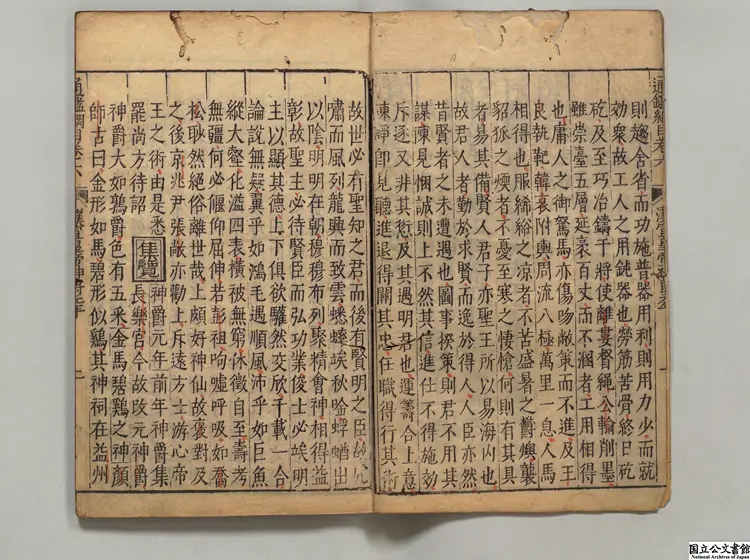 通鑑綱目卷六
則趨舍省而功施普器用利則用力少而就
効衆故工人之用鈍器也勞筋苦骨終日矻
矻及至巧冶鑄干將使離婁督繩公輸削墨
雖崇臺五層延袤百丈而不溷者工用相得
也庸人之御駑馬亦傷吻敝策而不進及王
良執靶韓哀附輿周流八極萬里一息人馬
相得也服絺綌之凉者不苦盛暑之欝燠襲
貂狐之煖者不憂至寒之悽愴何則有其具
者易其備賢人君子亦聖王所以易海內也
故君人者勤於求賢而逸於得人人臣亦然
昔賢者之未遭遇也圖事揆策則君不用其
謀陳見悃誠則上不然其信進仕不得施効
斥逐又非其愆及其遇明君也運籌合上意
諫諍即見聽進退得關其忠任職得行其術
故世必有聖知之君而後有賢明之臣故虎
嘯而風列龍興而致雲蟋蟀竢秋唫蜉蝤出
以陰明明在朝穆穆布列聚精會神相得益
彰故聖主必待賢臣而弘功業俊士必俟明
主以顯其德上下俱欲驩然交欣千載一合
論說無疑翼乎如鴻毛遇順風沛乎如巨魚
縱大壑化溢四表橫被無窮休徵自至壽考
無疆何必偃仰屈伸若彭祖呴嘘呼吸如喬
松眇然絕俗離世哉上頗好神仙故褒對及
之後京兆尹張敞亦勸上斥遠方士游心帝
王之術由是悉
罷尚方待詔
集覽
神爵元年前年神爵集
長樂宮今故改元神爵
神爵大如鷃爵色有五采金馬碧鷄之神顏
師古曰金形如馬碧形似鷄其神祠在益州
通鑑綱目卷六
国立公文書館
National Archives of Japan